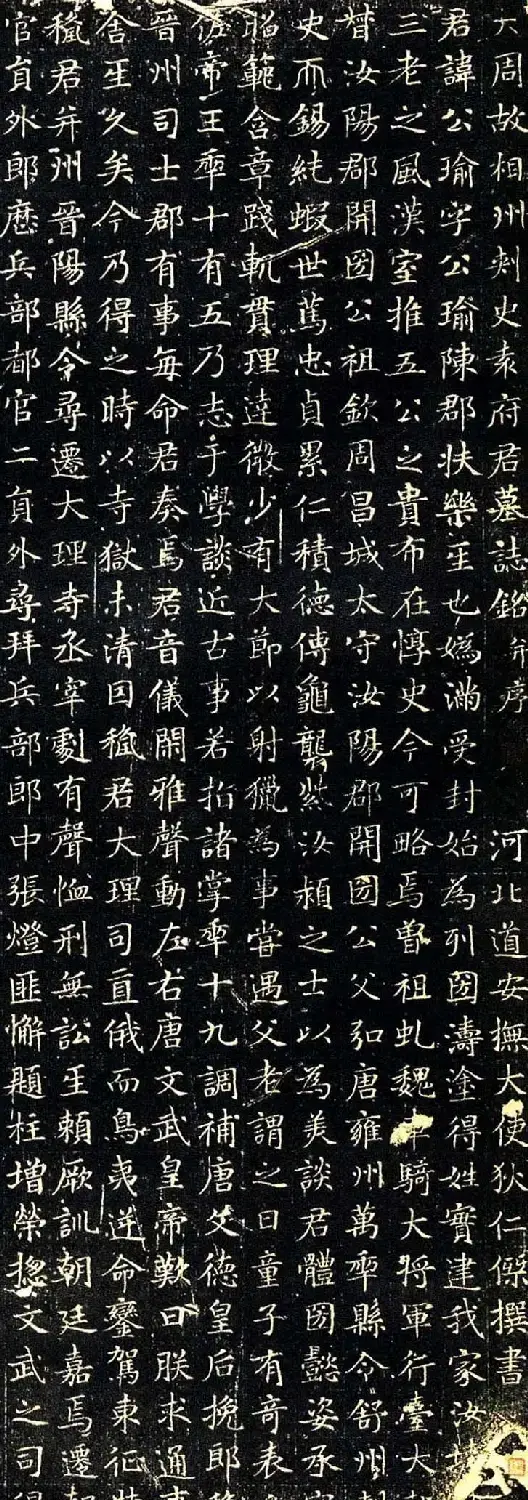 大周故相州刾史袁府君墓誌銘并序 河北道安撫大使狄仁傑撰書
君諱公瑜字公瑜陳郡扶樂𤯔也媯滿受封始為列圀濤塗得姓實建我家汝
三老之風漢室推五公之貴布在惇史今可略焉曾祖虬魏車騎大將軍行臺大
督汝陽郡開圀公祖欽周昌城太守汝陽郡開圀公父弘唐雍州萬𠡦縣令舒州
史而錫純蝦世篤忠貞累仁積德傳龜襲紫汝潁之士以為美談君體圀懿姿承
昭範含章踐軌貫理達微少有大節以射獵為事嘗遇父老謂之曰童子有奇表
佐帝王𠡦十有五乃志于學談近古事若指諸掌𠡦十九調補唐文德皇后挽郎
晉州司士郡有事每命君奏焉君音儀閑雅聲動左右唐文武皇帝歎曰朕求通
舍𤯔久矣今乃得之時以寺獄未清因𥠢君大理司直俄而鳥夷逆命鑾駕東征
𥠢君并州晉陽縣令尋遷大理寺丞宰劇有聲恤刑無訟𤯔賴厥訓朝廷嘉焉遷
官員外郎歷兵部都官二員外尋拜兵部郎中張燈匪懈題柱增榮揔文武之司